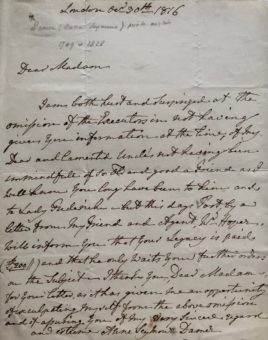 London Oct. 30th 1816
Damer (Anne Seymour)
1749 - 1828
Dear Madam
I am both hurt and surprized at the
omission of the Executors in not having
given you information at the time, of my
Dear and Lamented Uncle, not having been
unmindful of so old and good a friend as I
well know you long have been to him, and
to Lady Frederick - but this days Post by a
letter from my Friend and Agent Wm. Hoper
will inform you that your Legacy is paid,
and that he only waits your further orders
on the Subject. I thank you, Dear Madam,
for your letter as it has given me an opportunity
of exculpating myself from the above omission
and of assuring you of my very sincere regard
and esteem Anne Seymour Damer